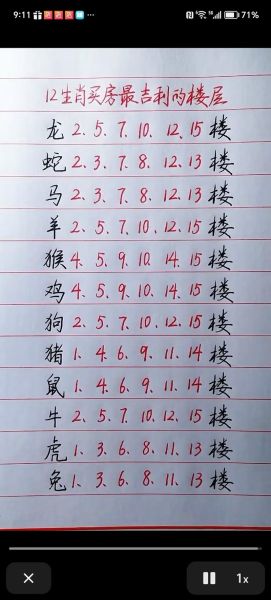 9:11 71%
12生肖买房最吉利的楼层
龙 2、5、7、10、12、15 楼
蛇 2、3、7、8、12、13 楼
马 2、3、7、8、12、13 楼
羊 2、5、7、10、12、15 楼
猴 4、5、9、10、14、15 楼
鸡 4、5、9、10、14、15 楼
狗 2、5、7、10、12、15 楼
猪 1、4、6、9、11、14 楼
鼠 1、4、6、9、11、14 楼
牛 2、5、7、10、12、15 楼
虎 1、3、6、8、11、13 楼
兔 1、3、6、8、11、13 楼
1x